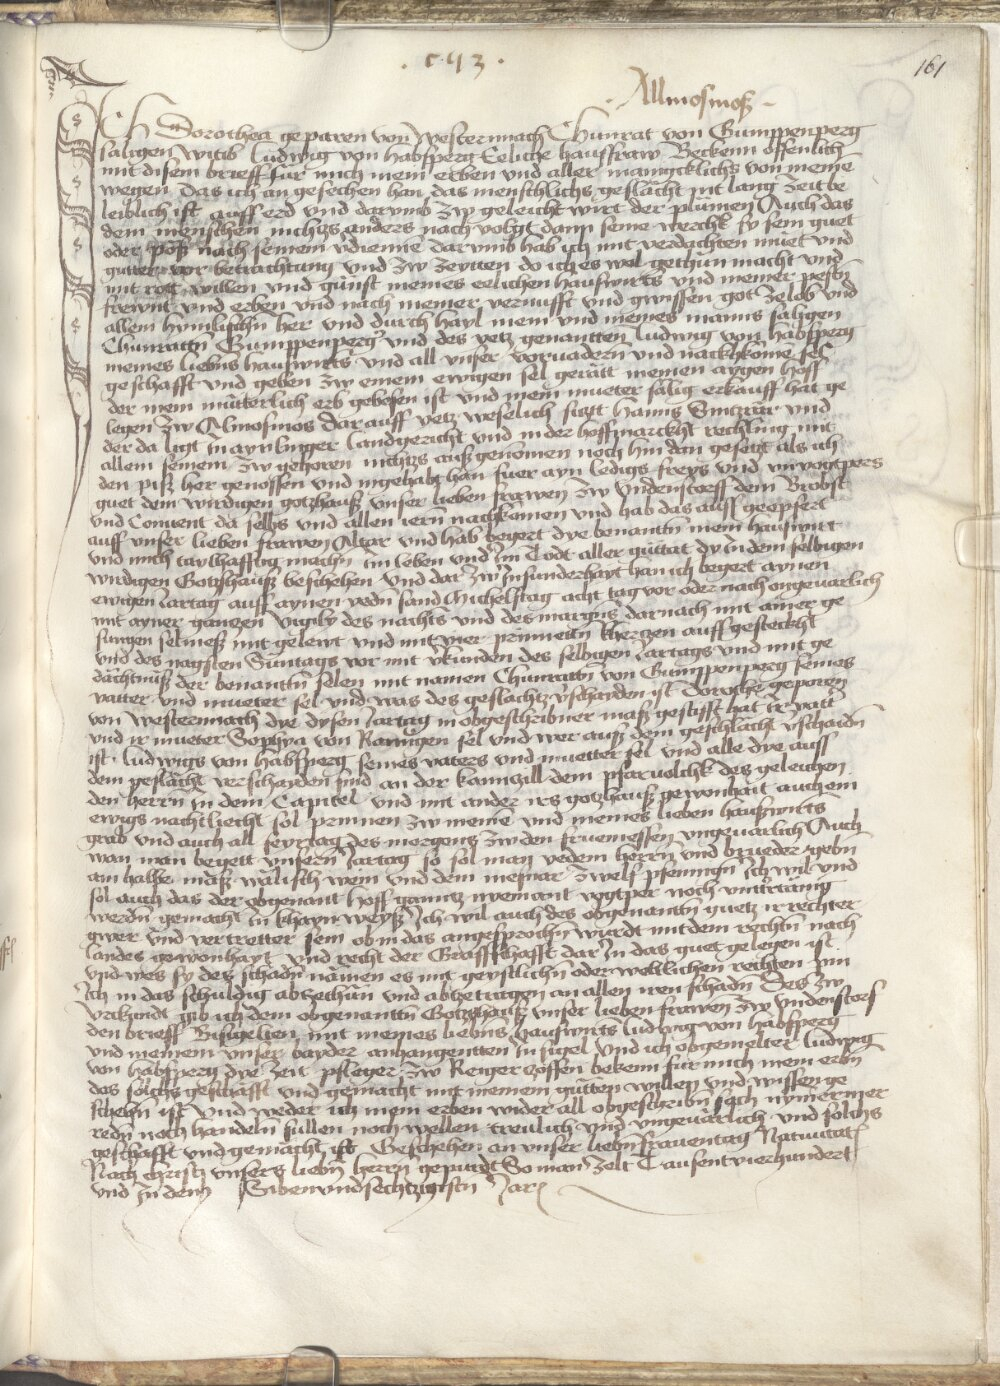 · c·lxj3 ·
161
Allmosmoß
Ich Dorothea geparen von Westernnach Chunrat von Gumppenperg
säligen witib Ludwig von Habsperg Eeliche haussfraw Beckenn offenlich
mit disem brieff für mich mein erben und aller mänigcklichs von meine
wegen Das ich an gesechen han das menschlichs geslächt nit lang zeit be
leiblich ist auff erd vnd darumb zw geleicht wirt der plümen Auch das
dem menschen nichtzs anders nach volgt dann seine werchk sy sein guet
oder poß nach seinem vdienne Darumb hab ich mit verdachten muet vnd
gutter vor betrachtung vnd zw zeytten do ich es wol gethün macht vnd
mit rott willen vnd gunst meines eelichen haußwirts vnd meiner pesten
frewnt vnd erben vnd nach meiner vernufft vnd gwissen got ze lob vnd
allem hymlischn her vnd durch hayl mein vnd meines manns säligen
Chunratn Gumppenperg vnd des yetz genantten Ludwig von habsperg
meines liebns haußwirts vnd all vnser vorvadern vnd nachkome sel
geschafft vnd geben zw einem ewigen sel gerätt meinen aygen hoff
der mein mütterlich erb gebesen ist vnd mein mueter sälig erkaufft hat ge
legen zw Almosmos dar auff yetz weselich sitzt Hanns vnd
der da ligt in aychinger landgericht vnd in der hoffmarckht rechling mit
allem seinem zw gehoren nichtzs auß genomen noch hin dan gesetzt als ich
den piß her genossen vnd ingehabt han fuer ayn ledigs freys vnd vnvogtpers
guet dem wirdigen gotzhauß vnser lieben frawen zw Vndenstorff dem Brobst
vnd Convent da selbs vnd allen iern nachkomen vnd hab das auff geopfert
auff vnser lieben frawen Altar vnd hab begert dye benantn mein haußwirt
vnd mich taylhafftig machn im leben vnd im Todt aller güttat dy in dem selbigen
wirdigen Gotzhauß beschehen vnd dar zw Insunderhayt han ich begert aynen
ewigen Jartag auff aynen yedn sand Michelstag acht tag vor oder nach ongevarlich
mit ayner gantzen vigily des nachts vnd des margns darnach mit ainer ge
sungen selmeß mit gelewt vnd mit vier prinnetn kerzen auffgesteckht
vnd des nagsten Suntags vor mit vkunden des selbigen Jartags vnd mit ge
dächtnuß der benantn selen mit namen Chunratn von Gumppenperg seines
vatter vnd mueter sel vnd was des geslachtz vschayden ist Dorothe geporen
von Westernach dye dysen Jartag in obgeschribner maß gestifft hat ir vatt
vnd ir mueter Sophya von sel vnd wer auß dem geschlächt vschaidn
ist Ludwigs von Habsperg seines vatters vnd muetter sel vnd alle dye auß
dem geslächt verschayden sind an der kannzill dem pfarvolchk des geleichen
den herrn in dem Capitel vnd mit ander irs gotzhauß gewonhait auch ein
ewigs nachtliecht sol prinnen zw meine vnd meines lieben haußwirts
grab vnd auch all feyrtag des morgens zw den fruemessen vngeuarlich Auch
wan man begett vnsern Jartag so sol man yedem herrn vnd brueder gebn
ain halbe maß wälisch wein vnd dem mesnar zwelf pfenning Ich wil vnd
sol auch das der obgenant hoff gainntz nyemant vogtper noch
werdn gemacht in khayn weyß Ich wil auch des obgenantn guetz ir rechter
gwer vnd vertretter sein ob in das angesprochn würdt mit dem rechtn nach
Landes gewonhayt vnd recht der Graffschafft dar in das guet gelegen ist
vnd wes sy des schadn nämen es mit geystlichn oder weltlichen rechten bin
ich in das schuldig abzechün vnd abzetragen an allen iren schadn Des zw
vrkundt gib ich dem obgenanttn Gotzhauß vnser lieben frawen zw Vndenstorf
den brieff Besigelten mit meines liebns haußwirts Ludwig von Habsperg
vnd meinem vnser bayder anhangentten Insigel Vnd ich obgemelter Ludwig
von Habsperg dye zeit pfleger zw bekenn für mich mein erbn
das solchs geschafft vnd gemacht mit meinem gütten willen vnd wissen ge
schehn ist Vnd weder ich mein erben wider all obgeschribn sach nymermer
redn noch handeln süllen noch wellen treulich vnd vngeuärlich vnd solchs
geschafft vnd gemächt ist Beschehen an vnser liebn frauentag Natiuitat
Nach christj vnsers liebn herrn gepurdt So man zelt Tausent vierhundert
vnd in dem Sibenvndsechtzigistn Jare